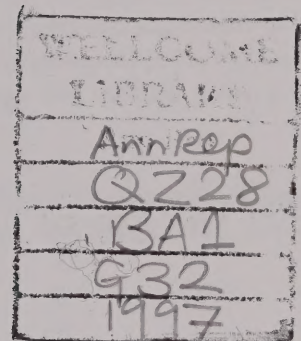 WELLCOME
LIBRARY
AnnRep
QZ28
BA1
G32
1997